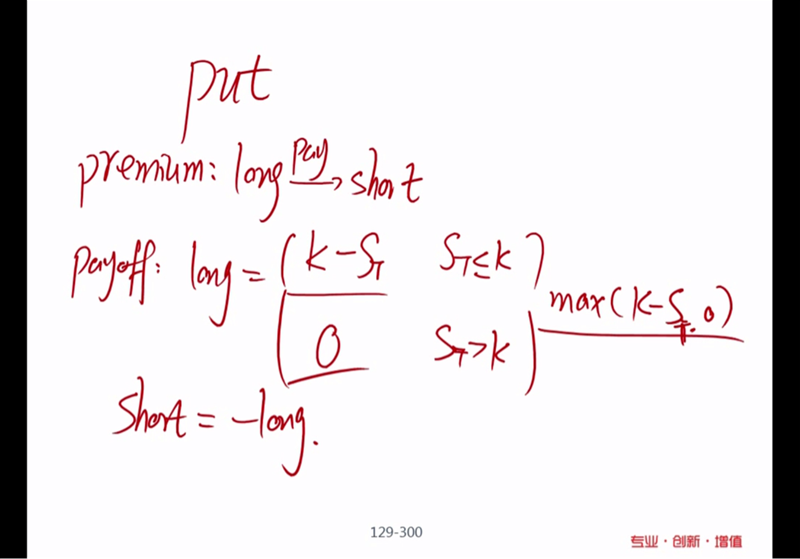 put
premium: long pay → short
payoff: long = ( K - S_T    S_T ≤ K )
max(K - S_T, 0)
0    S_T > K
Short = -long.
129-300
专业·创新·增值